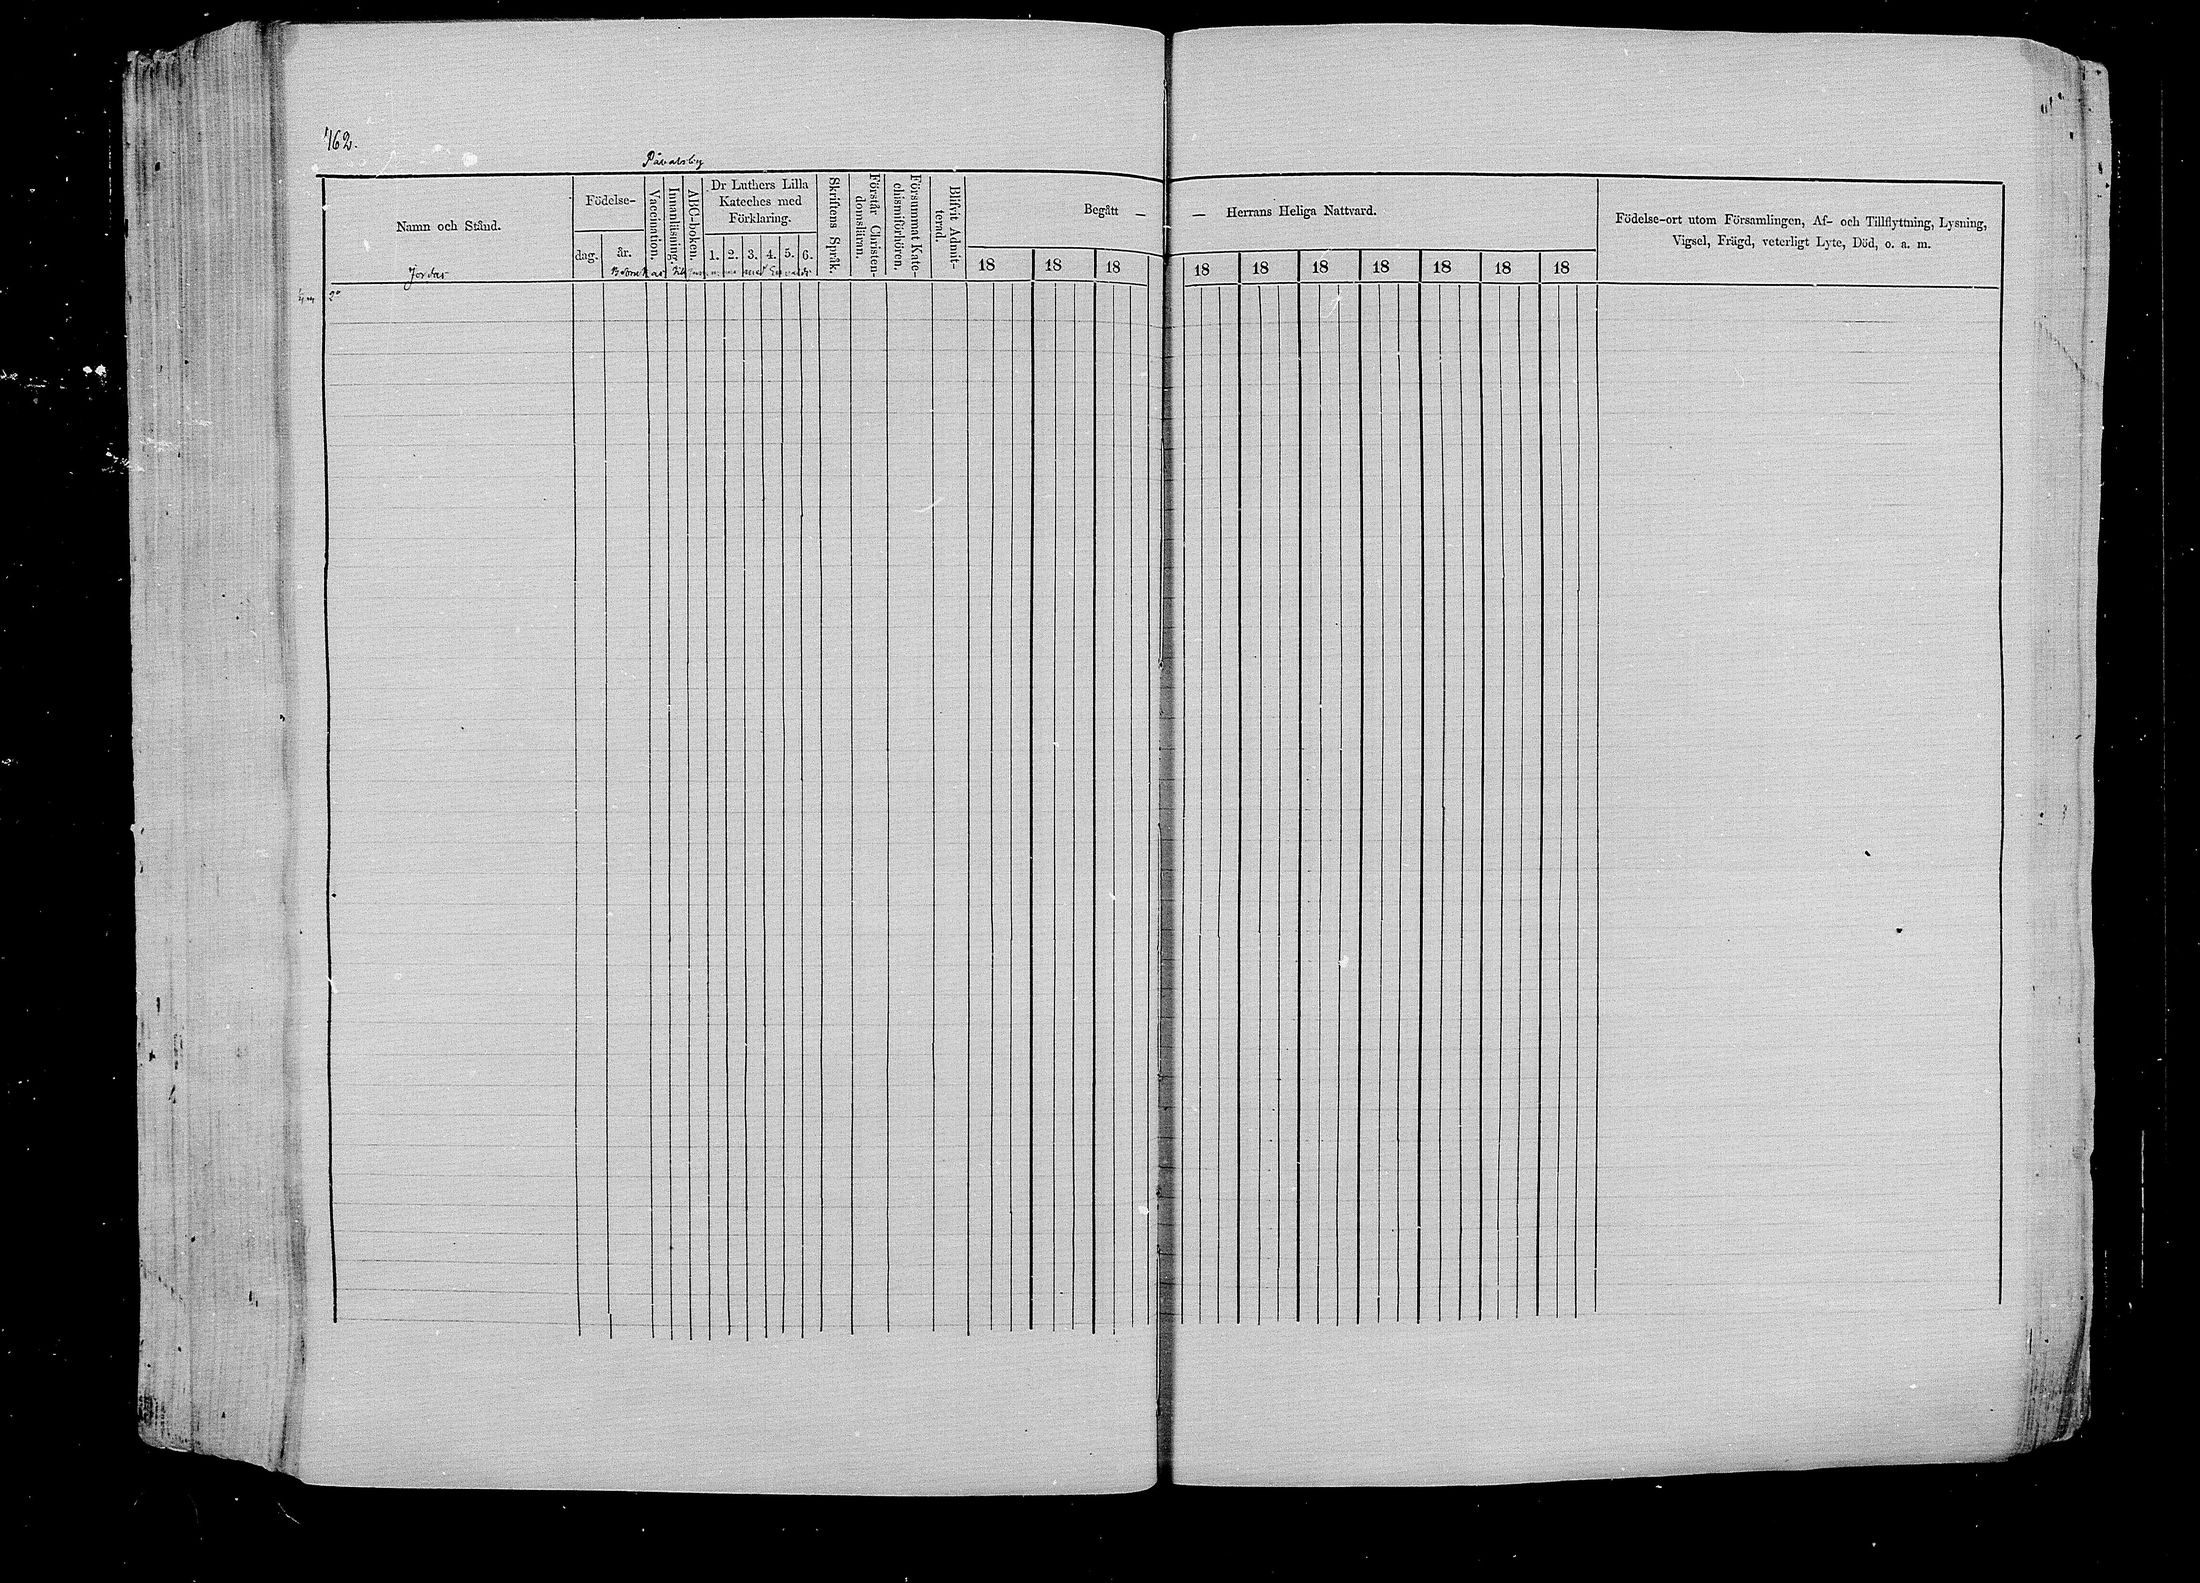 762.
Påvalsby
Namn och Stånd.
Födelse-
dag.
år.
Vaccination.
Innanläsning.
ABC-boken.
Dr Luthers Lilla
Kateches med
Förklaring.
1. 2. 3. 4. 5. 6.
Skriftens Språk.
Förstår Christen-
domsläran.
Försummat Kate-
chismiförhören.
Blifvit Admit-
terad.
Begått —
18 18 18
— Herrans Heliga Nattvard.
18 18 18 18 18 18 18
Födelse-ort utom Församlingen, Af- och Tillflyttning, Lysning,
Vigsel, Frägd, veterligt Lyte, Död, o. a. m.